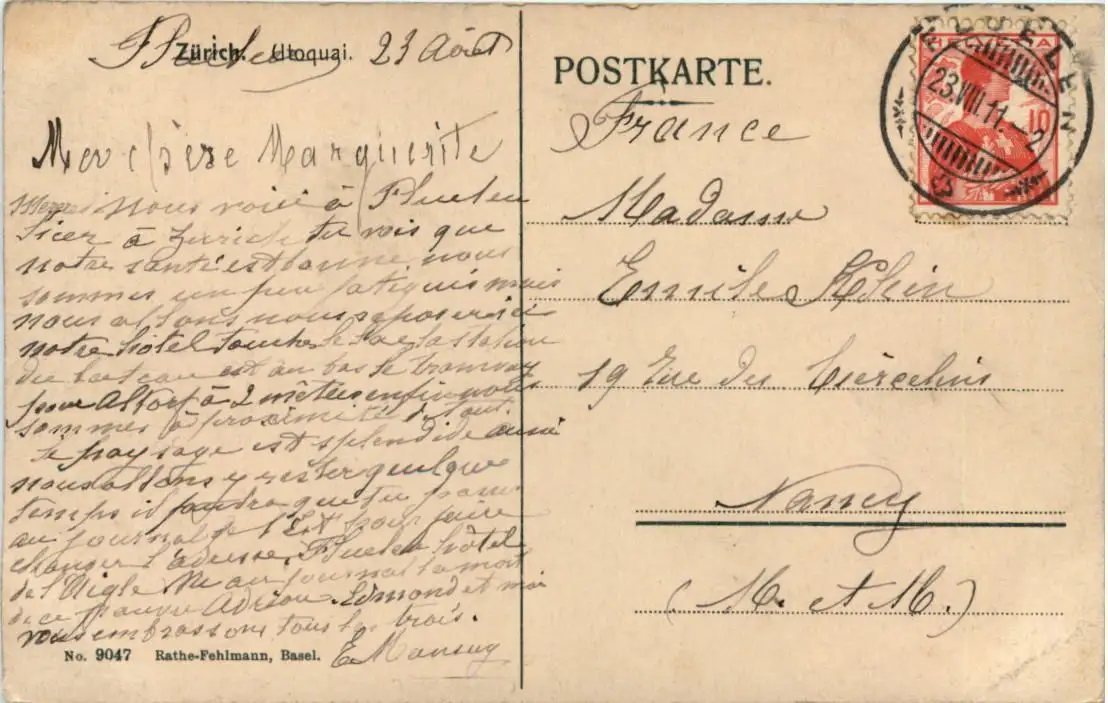 Zürich. Utoquai.
Fluelen 23 Août
Ma chère Marguerite
nous voici à Fluelen
hier à Zurich tu vois que
notre santé est bonne nous
sommes un peu fatigués mais
nous allons nous reposer ici
notre hôtel touche le lac la station
du bateau est au bas le tramway
pour Altorf à 2 mètres enfin nous
sommes à proximité de tout.
Le paysage est splendide aussi
nous allons y rester quelque
temps il faudra que tu passe
au journal de l'Est pour faire
changer l'adresse. Fluelen hôtel
de l'Aigle au journal la mort
de ce pauvre Adrien. Edmond et moi
vous embrassons tous les trois.
E. Mansuy
No. 9047 Rathe-Fehlmann, Basel.
POSTKARTE.
France
Madame
Emile Klein
19 Rue des Tiercelins
Nancy
(M. et M.)
FLUELEN
23.VIII.11.-2
10